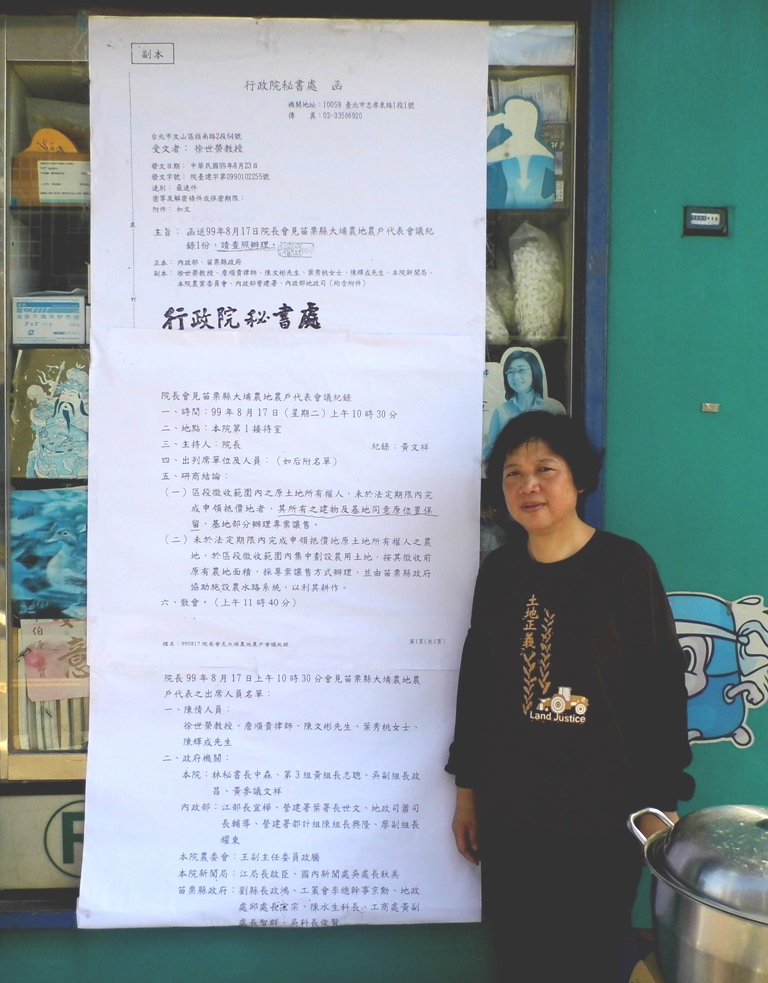 副本
行政院秘書處 函
機關地址：10058 臺北市忠孝東路1段1號
傳 真：02-33566920
台北市文山區指南路2段64號
受文者： 徐世榮教授
發文日期： 中華民國99年8月23日
發文字號： 院臺建字第0990102255號
速別： 最速件
密等及解密條件或保密期限：
附件： 如文
主旨： 函送99年8月17日院長會見苗栗縣大埔農地農戶代表會議紀
錄1份，請查照辦理。
正本： 內政部、苗栗縣政府
副本： 徐世榮教授、詹順貴律師、陳文彬先生、葉秀桃女士、陳輝成先生、本院新聞局、
本院農業委員會、內政部營建署、內政部地政司（均含附件）
行政院秘書處
院長會見苗栗縣大埔農地農戶代表會議紀錄
一、時間：99 年 8 月 17 日（星期二）上午 10 時 30 分
二、地點：本院第 1 接待室
三、主持人：院長 紀錄：黃文祥
四、出列席單位及人員：（如后附名單）
五、研商結論：
（一）區段徵收範圍內之原土地所有權人，未於法定期限內完
成申領抵價地者，其所有之建物及基地同意原位置保
留，基地部分辦理專案讓售。
（二）未於法定期限內完成申領抵價地原土地所有權人之農
地，於區段徵收範圍內集中劃設農用土地，按其徵收前
原有農地面積，採專案讓售方式辦理，並由苗栗縣政府
協助施設農水路系統，以利其耕作。
六、散會。（上午 11 時 40 分）
檔名：990817院長會見大埔農地農戶會議紀錄 第1頁(共1頁)
院長 99 年 8 月 17 日上午 10 時 30 分會見苗栗縣大埔農地農
戶代表之出席人員名單：
一、陳情人員：
徐世榮教授、詹順貴律師、陳文彬先生、葉秀桃女士、
陳輝成先生
二、政府機關：
本院：林秘書長中森、第 3 組黃組長志聰、吳副組長政
昌、黃參議文祥
內政部：江部長宜樺、營建署葉署長世文、地政司蕭司
長輔導、營建署都計組陳組長興隆、廖副組長
耀東
本院農委會：王副主任委員政騰
本院新聞局：江局長啟臣、國內新聞處吳處長秋美
苗栗縣政府：劉縣長政鴻、工策會李總幹事京勳、地政
處邱處長宋宗、陳水生科長、工商處黃副
處長智群、吳科長俊賢
土地正義
Land Justice